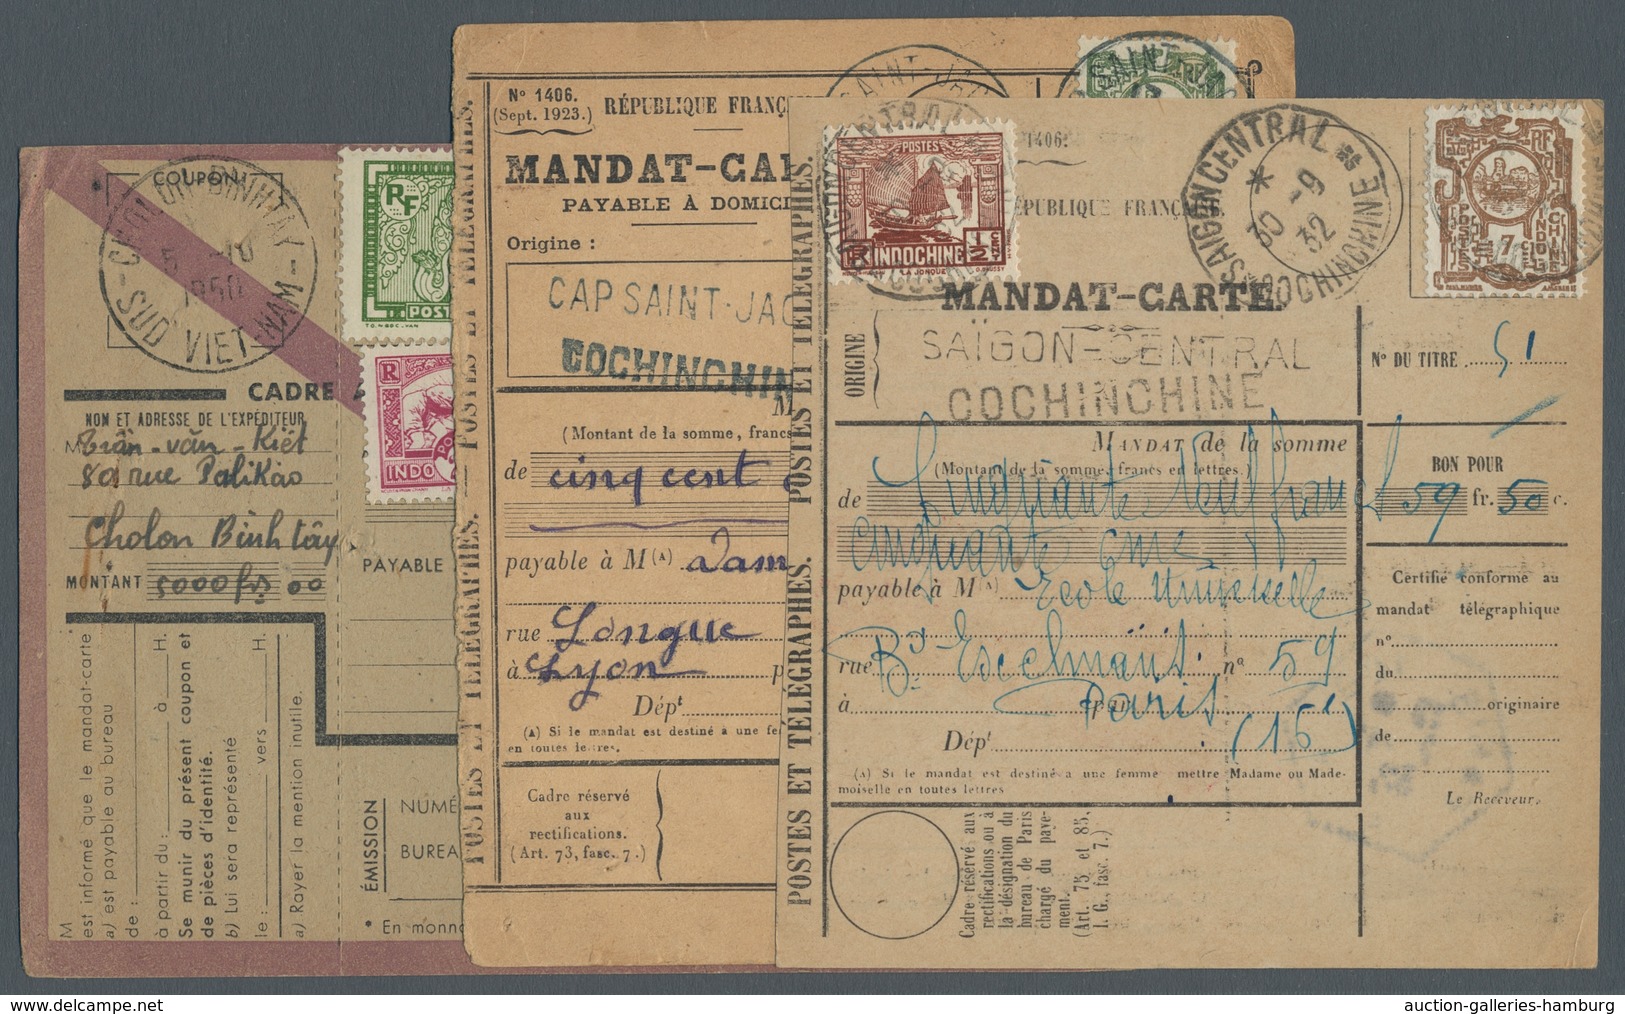 COUPON
CHOLON-BINHTAY
5 -10
1950
SUD VIET-NAM
RF
POST
TONNGOC-VAN
R
INDO
CADRE
NOM ET ADRESSE DE L'EXPÉDITEUR
M Trân-văn-Kiêt
80 rue Palikao
Cholon Binh tây
MONTANT 5000 frs 00
M
est informé que le mandat-carte
a) est payable au bureau
de :
à partir du : à H.
Se munir du présent coupon et
de pièces d'identité.
b) Lui sera représenté
le : vers H.
a) Rayer la mention inutile.
PAYABLE
ÉMISSION
NUMÉ
BUREA
• En monna
POSTES ET TÉLÉGRAPHES. — POSTES ET TÉLÉGRAPHES. — POSTES ET TÉLÉGRAPHES.
N° 1406.
(Sept. 1923.)
RÉPUBLIQUE FRANÇ
MANDAT-CAR
PAYABLE À DOMICI
Origine :
CAP SAINT-JAC
COCHINCHIN
M
(Montant de la somme, francs
de cinq cent
payable à M(A)
rue Longue
à Lyon p
Dépt
(A) Si le mandat est destiné a une fe
en toutes lettres.
Cadre réservé
aux
rectifications.
(Art. 73, fasc. 7.)
SAINT-JAC
SAINT-JAC
POSTES ET TÉLÉGRAPHES. POSTES ET TÉLÉGRAPHES. POSTES ET TÉLÉGRAPHES.
1406.
ÉPUBLIQUE FRANÇAISE.
POSTES
RF
1/2 CENT
INDOCHINE
LA JONQUE
SAIGON CENTRAL
30 -9
32
COCHINCHINE
RF
POSTES
INDOCHINE
7
MANDAT-CARTE
ORIGINE
SAÏGON-CENTRAL
COCHINCHINE
N° DU TITRE 51
MANDAT de la somme
(Montant de la somme, francs en lettres.)
de Cinquante Neuf francs
Cinquante cmes
payable à M(A) Ecole Universelle
rue Bd Exelmans n° 59
à Paris par (16e)
Dépt
(A) Si le mandat est destiné a une femme mettre Madame ou Made-
moiselle en toutes lettres
BON POUR
59 fr. 50 c.
Certifié conforme au
mandat télégraphique
n°
du
originaire
de
Le Receveur,
Cadre réservé aux
rectifications ou à
la désignation du
bureau de Paris
chargé du paye-
ment.
(Art. 75 et 85,
I. G., fasc. 7.)
auction-galleries-hamburg